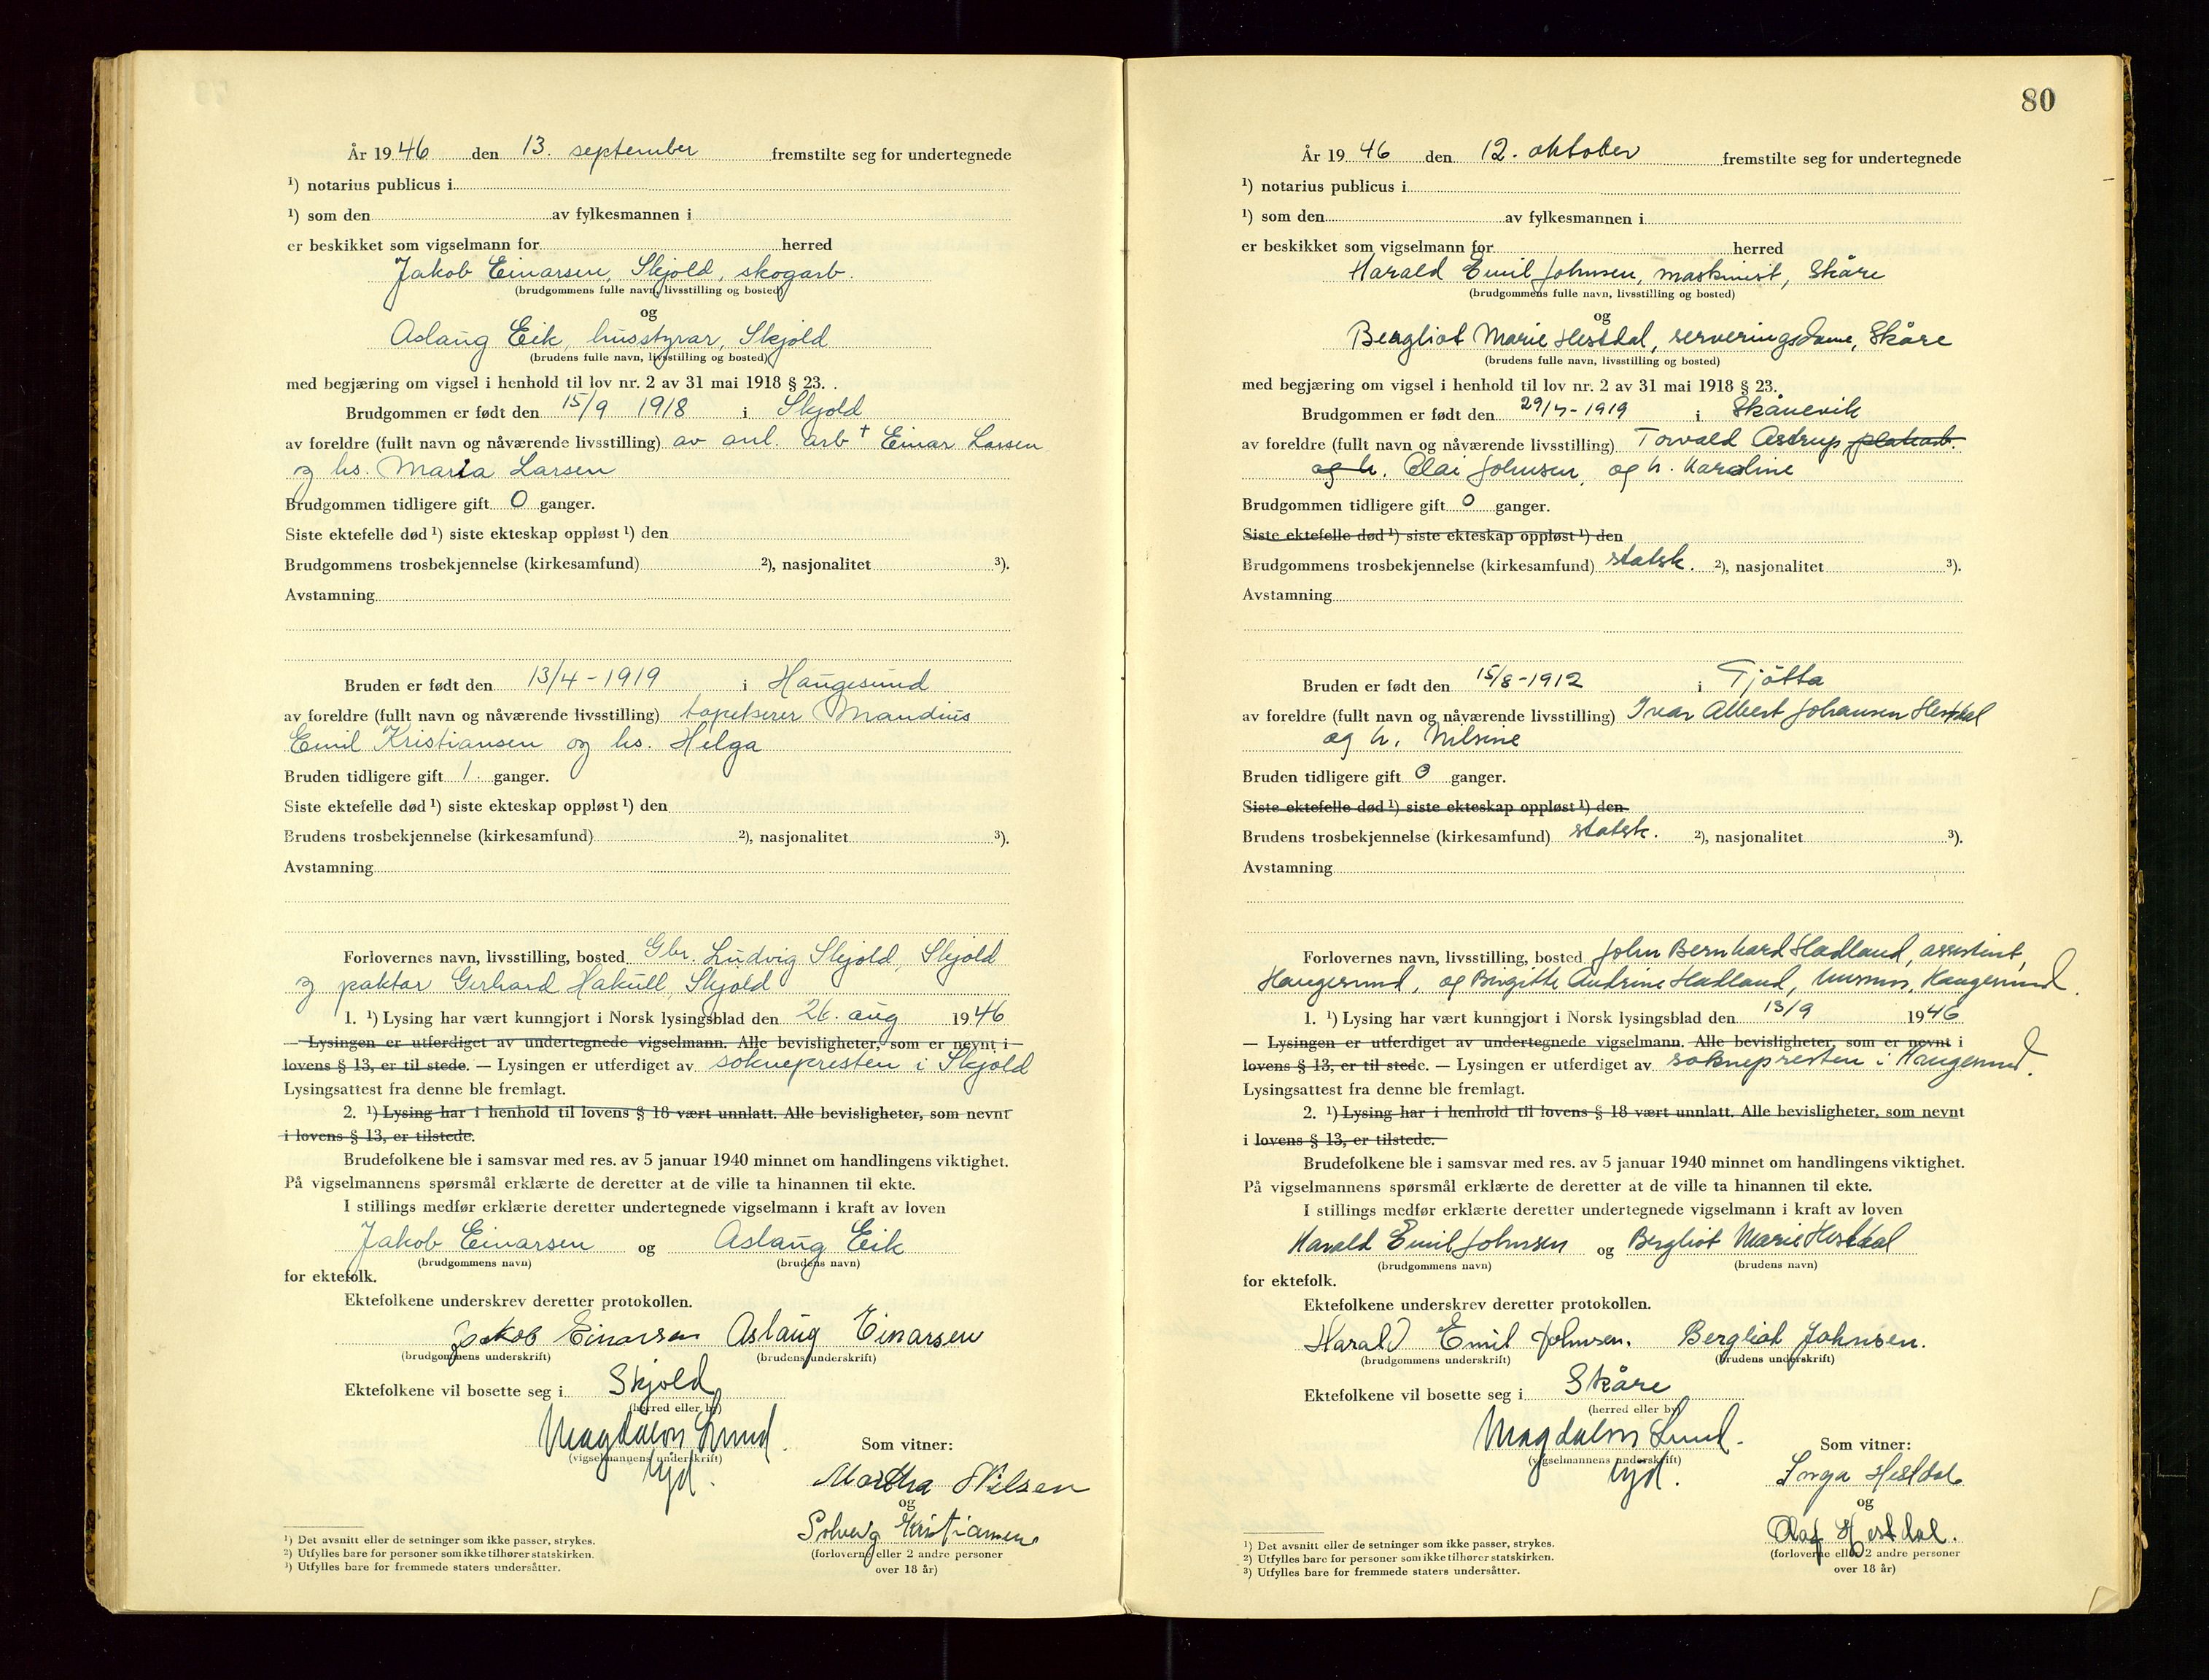 År 1946 den 13. september fremstilte seg for undertegnede
¹) notarius publicus i
¹) som den av fylkesmannen i
er beskikket som vigselmann for herred
Jakob Einarsen, Skjold, skogarb.
(brudgommens fulle navn, livsstilling og bosted)
og
Aslaug Eik, husstyrar, Skjold
(brudens fulle navn, livsstilling og bosted)
med begjæring om vigsel i henhold til lov nr. 2 av 31 mai 1918 § 23.
Brudgommen er født den 15/9 1918 i Skjold
av foreldre (fullt navn og nåværende livsstilling) av anl. arb + Einar Larsen
og hs. Maria Larsen
Brudgommen tidligere gift 0 ganger.
Siste ektefelle død ¹) siste ekteskap oppløst ¹) den
Brudgommens trosbekjennelse (kirkesamfund) ²), nasjonalitet ³).
Avstamning
Bruden er født den 13/4 - 1919 i Haugesund
av foreldre (fullt navn og nåværende livsstilling) tapetserer Mandius
Emil Kristiansen og hs. Helga
Bruden tidligere gift 1. ganger.
Siste ektefelle død ¹) siste ekteskap oppløst ¹) den
Brudens trosbekjennelse (kirkesamfund) ²), nasjonalitet ³).
Avstamning
Forlovernes navn, livsstilling, bosted Gbr. Ludvig Skjold, Skjold
og paktar Gerhard Hakull, Skjold
1. ¹) Lysing har vært kunngjort i Norsk lysingsblad den 26. aug 1946
— Lysingen er utferdiget av undertegnede vigselmann. Alle bevisligheter, som er nevnt i
lovens § 13, er til stede. — Lysingen er utferdiget av soknepresten i Skjold
Lysingsattest fra denne ble fremlagt.
2. ¹) Lysing har i henhold til lovens § 18 vært unnlatt. Alle bevisligheter, som nevnt
i lovens § 13, er tilstede.
Brudefolkene ble i samsvar med res. av 5 januar 1940 minnet om handlingens viktighet.
På vigselmannens spørsmål erklærte de deretter at de ville ta hinannen til ekte.
I stillings medfør erklærte deretter undertegnede vigselmann i kraft av loven
Jakob Einarsen og Aslaug Eik
(brudgommens navn) (brudens navn)
for ektefolk.
Ektefolkene underskrev deretter protokollen.
Jakob Einarsen Aslaug Einarsen
(brudgommens underskrift) (brudens underskrift)
Ektefolkene vil bosette seg i Skjold
(herred eller by)
Magdalon Lund.
(vigselmannens underskrift)
Som vitner:
Martha Nilsen
og
Solveig Kristiansen
(forloverne eller 2 andre personer
over 18 år)
¹) Det avsnitt eller de setninger som ikke passer, strykes.
²) Utfylles bare for personer som ikke tilhører statskirken.
³) Utfylles bare for fremmede staters undersåtter.
80
År 1946 den 12. oktober fremstilte seg for undertegnede
¹) notarius publicus i
¹) som den av fylkesmannen i
er beskikket som vigselmann for herred
Harald Emil Johnsen, maskinist, Skåre
(brudgommens fulle navn, livsstilling og bosted)
og
Bergliot Marie Hestdal, serveringsdame, Skåre
(brudens fulle navn, livsstilling og bosted)
med begjæring om vigsel i henhold til lov nr. 2 av 31 mai 1918 § 23.
Brudgommen er født den 29/7 - 1919 i Skånevik
av foreldre (fullt navn og nåværende livsstilling) Torvald Astrup platearb.
og h. Olai Johnsen, og h. Karoline
Brudgommen tidligere gift 0 ganger.
Siste ektefelle død ¹) siste ekteskap oppløst ¹) den
Brudgommens trosbekjennelse (kirkesamfund) statsk. ²), nasjonalitet ³).
Avstamning
Bruden er født den 15/8 - 1912 i Tjøtta
av foreldre (fullt navn og nåværende livsstilling) Ivar Albert Johansen Hestdal
og h. Nilsine
Bruden tidligere gift 0 ganger.
Siste ektefelle død ¹) siste ekteskap oppløst ¹) den
Brudens trosbekjennelse (kirkesamfund) statsk. ²), nasjonalitet ³).
Avstamning
Forlovernes navn, livsstilling, bosted John Bernhard Hadland, assistent,
Haugesund, og Birgitte Andrine Hadland, husmor, Haugesund.
1. ¹) Lysing har vært kunngjort i Norsk lysingsblad den 13/9 1946
— Lysingen er utferdiget av undertegnede vigselmann. Alle bevisligheter, som er nevnt i
lovens § 13, er til stede. — Lysingen er utferdiget av soknepresten i Haugesund.
Lysingsattest fra denne ble fremlagt.
2. ¹) Lysing har i henhold til lovens § 18 vært unnlatt. Alle bevisligheter, som nevnt
i lovens § 13, er tilstede.
Brudefolkene ble i samsvar med res. av 5 januar 1940 minnet om handlingens viktighet.
På vigselmannens spørsmål erklærte de deretter at de ville ta hinannen til ekte.
I stillings medfør erklærte deretter undertegnede vigselmann i kraft av loven
Harald Emil Johnsen og Bergliot Marie Hestdal
(brudgommens navn) (brudens navn)
for ektefolk.
Ektefolkene underskrev deretter protokollen.
Harald Emil Johnsen. Bergliot Johnsen.
(brudgommens underskrift) (brudens underskrift)
Ektefolkene vil bosette seg i Skåre
(herred eller by)
Magdalon Lund.
(vigselmannens underskrift)
Som vitner:
Inga Hestdal
og
Olaf Hestdal.
(forloverne eller 2 andre personer
over 18 år)
¹) Det avsnitt eller de setninger som ikke passer, strykes.
²) Utfylles bare for personer som ikke tilhører statskirken.
³) Utfylles bare for fremmede staters undersåtter.